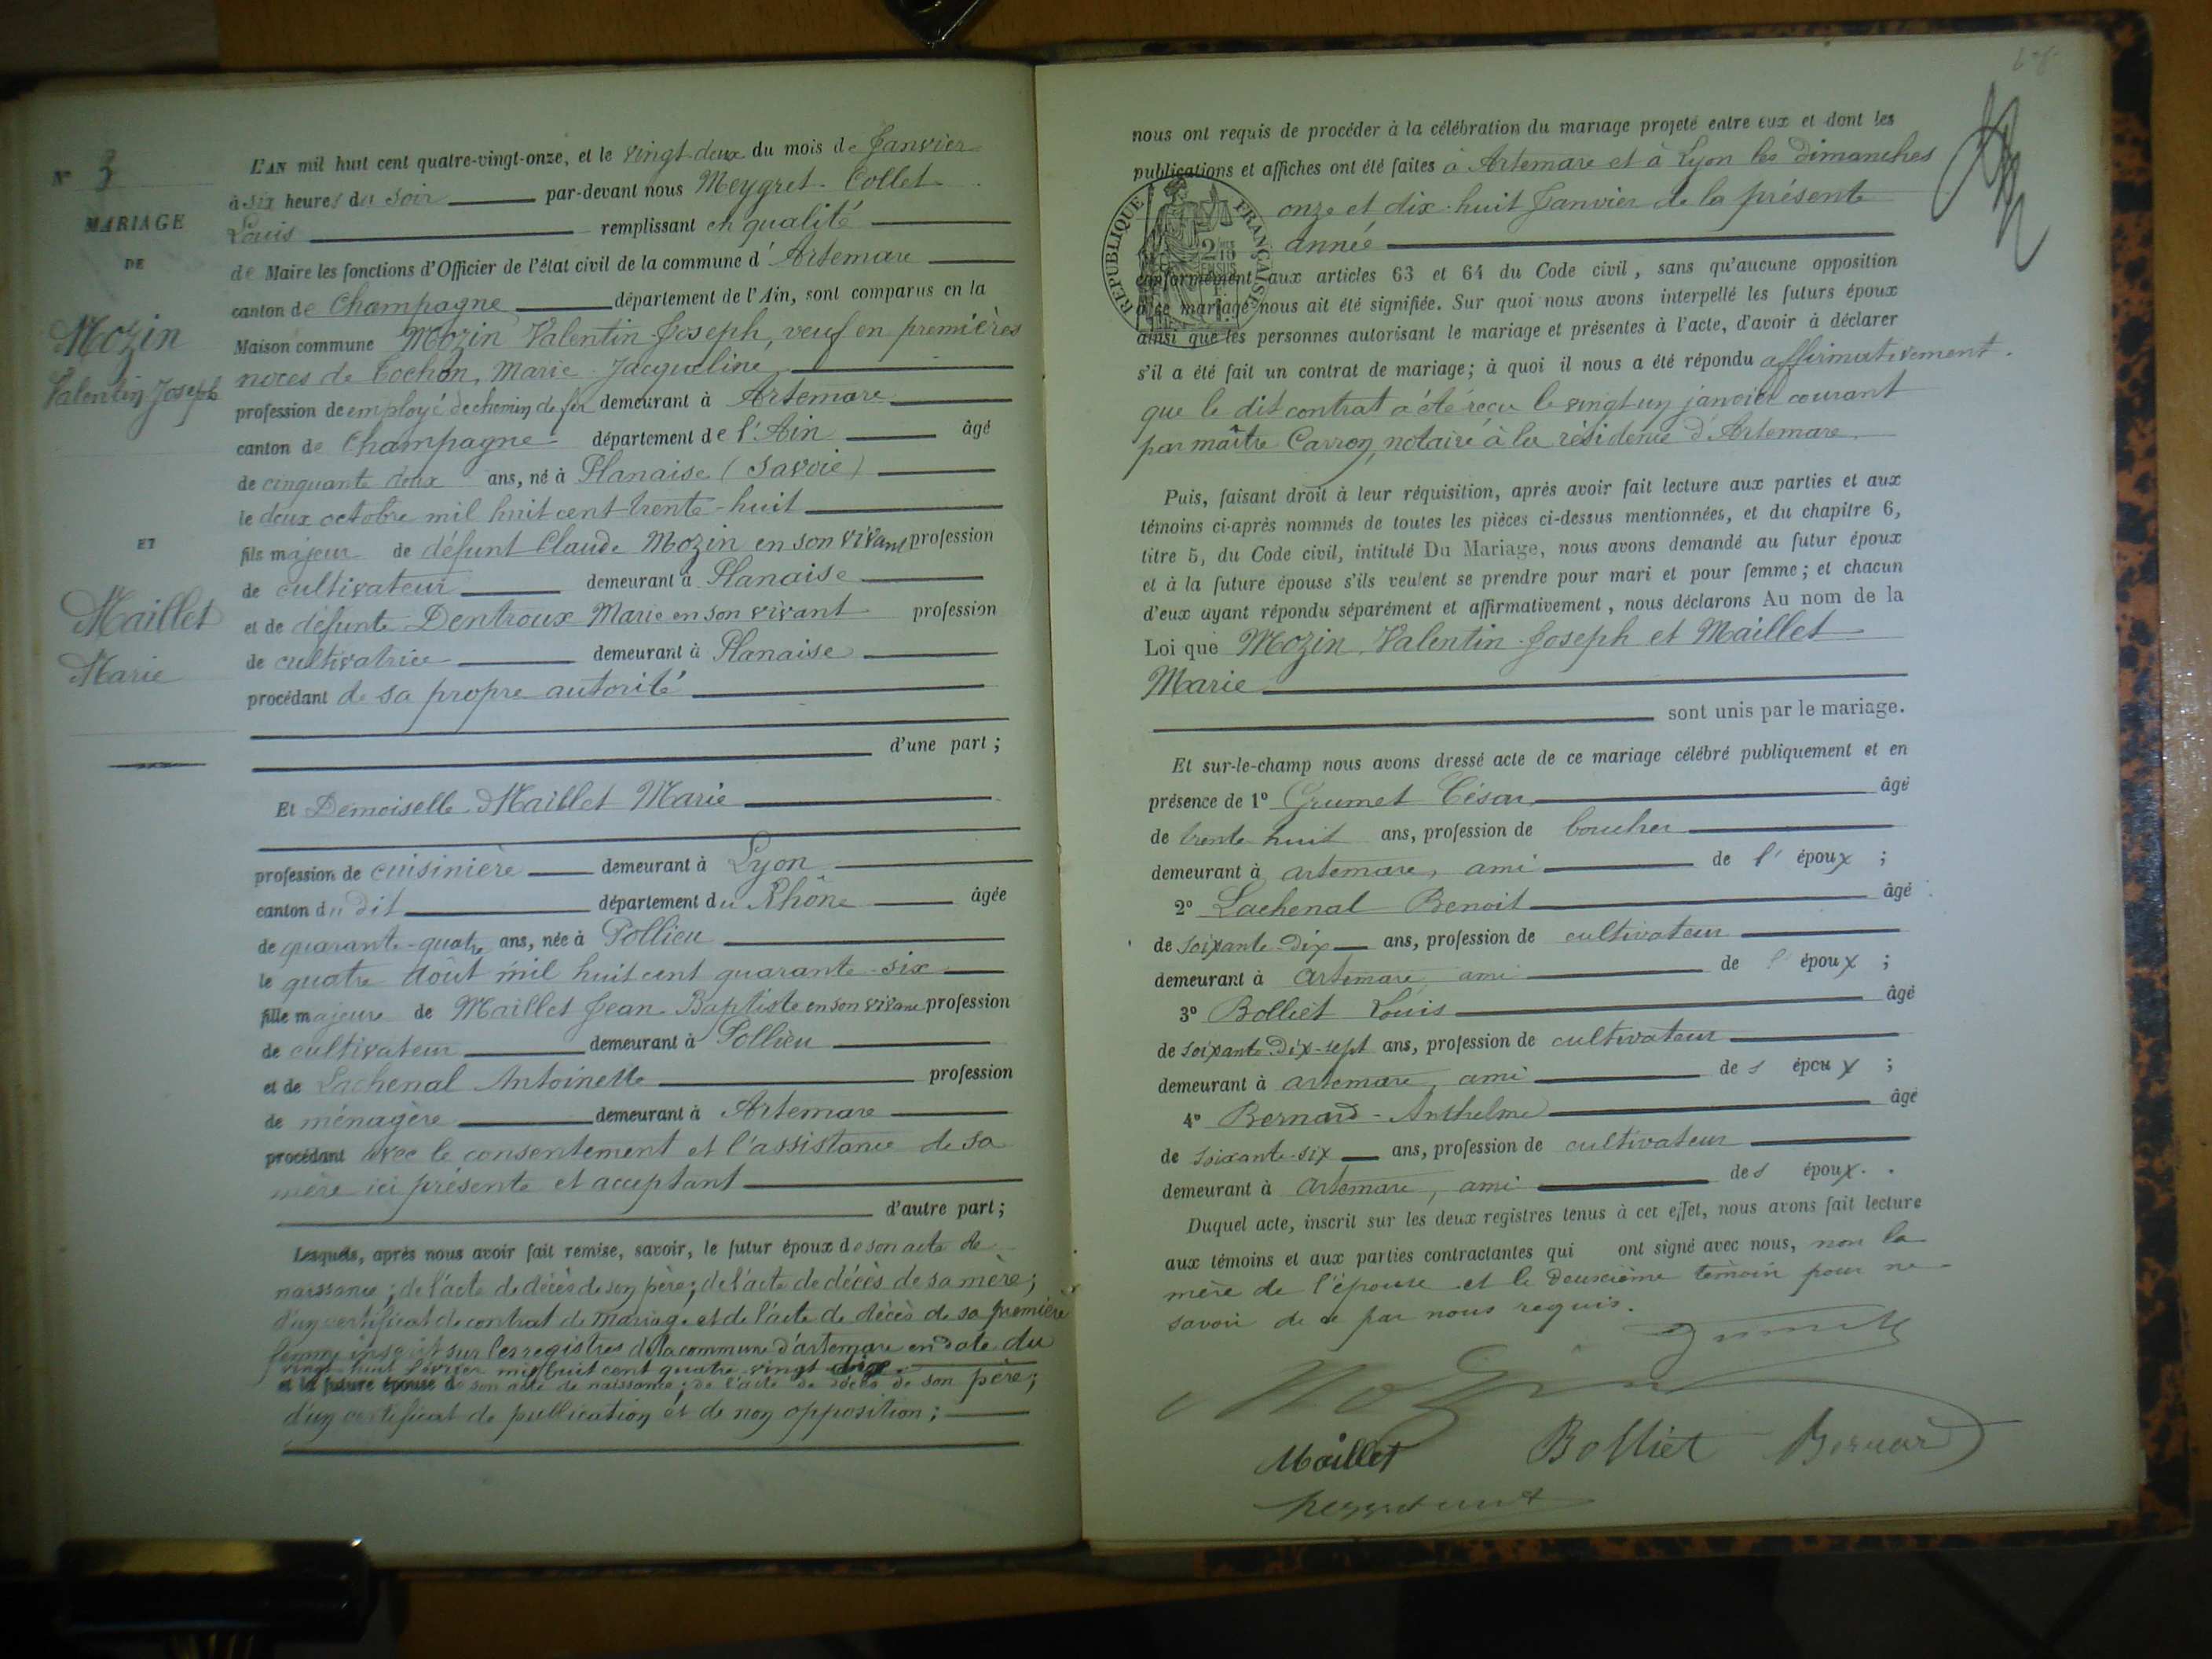 N° 3
MARIAGE
DE
Mozin
Valentin Joseph
ET
Maillet
Marie
L'AN mil huit cent quatre-vingt-onze, et le vingt-deux du mois de Janvier
à six heures du soir par-devant nous Meygret-Collet
Louis remplissant en qualité
de Maire les fonctions d'Officier de l'état civil de la commune d'Artemare
canton de Champagne département de l'Ain, sont comparus en la
Maison commune Mozin Valentin Joseph, veuf en premières
noces de Cochon, Marie Jacqueline,
profession de employé de chemin de fer demeurant à Artemare
canton de Champagne département de l'Ain âgé
de cinquante deux ans, né à Planaise (Savoie)
le deux octobre mil huit cent trente-huit
fils majeur de défunt Claude Mozin en son vivant profession
de cultivateur demeurant à Planaise
et de défunte Dentroux Marie en son vivant profession
de cultivatrice demeurant à Planaise
procédant de sa propre autorité
d'une part ;
Et Demoiselle Maillet Marie
profession de cuisinière demeurant à Lyon
canton du dit département du Rhône âgée
de quarante-quatre ans, née à Pollieu
le quatre août mil huit cent quarante-six
fille majeure de Maillet Jean Baptiste en son vivant profession
de cultivateur demeurant à Pollieu
et de Lachenal Antoinette profession
de ménagère demeurant à Artemare
procédant avec le consentement et l'assistance de sa
mère ici présente et acceptant
d'autre part ;
Lesquels, après nous avoir fait remise, savoir, le futur époux de son acte de
naissance ; de l'acte de décès de son père ; de l'acte de décès de sa mère ;
d'un certificat de contrat de mariage et de l'acte de décès de sa première
femme inscrit sur les registres de la commune d'artemare en date du
vingt-huit février mil huit cent quatre-vingt-dix.
et la future épouse de son acte de naissance ; de l'acte de décès de son père ;
d'un certificat de publication et de non opposition ;
nous ont requis de procéder à la célébration du mariage projeté entre eux et dont les
publications et affiches ont été faites à Artemare et à Lyon les dimanches
onze et dix-huit Janvier de la présente
année
RÉPUBLIQUE FRANÇAISE
conformément aux articles 63 et 64 du Code civil, sans qu'aucune opposition
à ce mariage nous ait été signifiée. Sur quoi nous avons interpellé les futurs époux
ainsi que les personnes autorisant le mariage et présentes à l'acte, d'avoir à déclarer
s'il a été fait un contrat de mariage ; à quoi il nous a été répondu affirmativement.
que le dit contrat a été reçu le vingt-un janvier courant
par maître Carron, notaire à la résidence d'Artemare.
Puis, faisant droit à leur réquisition, après avoir fait lecture aux parties et aux
témoins ci-après nommés de toutes les pièces ci-dessus mentionnées, et du chapitre 6,
titre 5, du Code civil, intitulé Du Mariage, nous avons demandé au futur époux
et à la future épouse s'ils veulent se prendre pour mari et pour femme ; et chacun
d'eux ayant répondu séparément et affirmativement, nous déclarons Au nom de la
Loi que Mozin, Valentin Joseph et Maillet
Marie
sont unis par le mariage.
Et sur-le-champ nous avons dressé acte de ce mariage célébré publiquement et en
présence de 1° Grumet César âgé
de trente huit ans, profession de boucher
demeurant à artemare, ami de l'époux ;
2° Lachenal Benoit âgé
de soixante-dix ans, profession de cultivateur
demeurant à artemare ami de l'époux ;
3° Bolliet Louis âgé
de soixante-dix-sept ans, profession de cultivateur
demeurant à artemare, ami des époux ;
4° Bernard-Anthelme âgé
de soixante-six ans, profession de cultivateur
demeurant à artemare, ami des époux.
Duquel acte, inscrit sur les deux registres tenus à cet effet, nous avons fait lecture
aux témoins et aux parties contractantes qui ont signé avec nous, non la
mère de l'épouse et le deuxième témoin pour ne
savoir de ce par nous requis.
Mozin
Maillet Bolliet Bernard